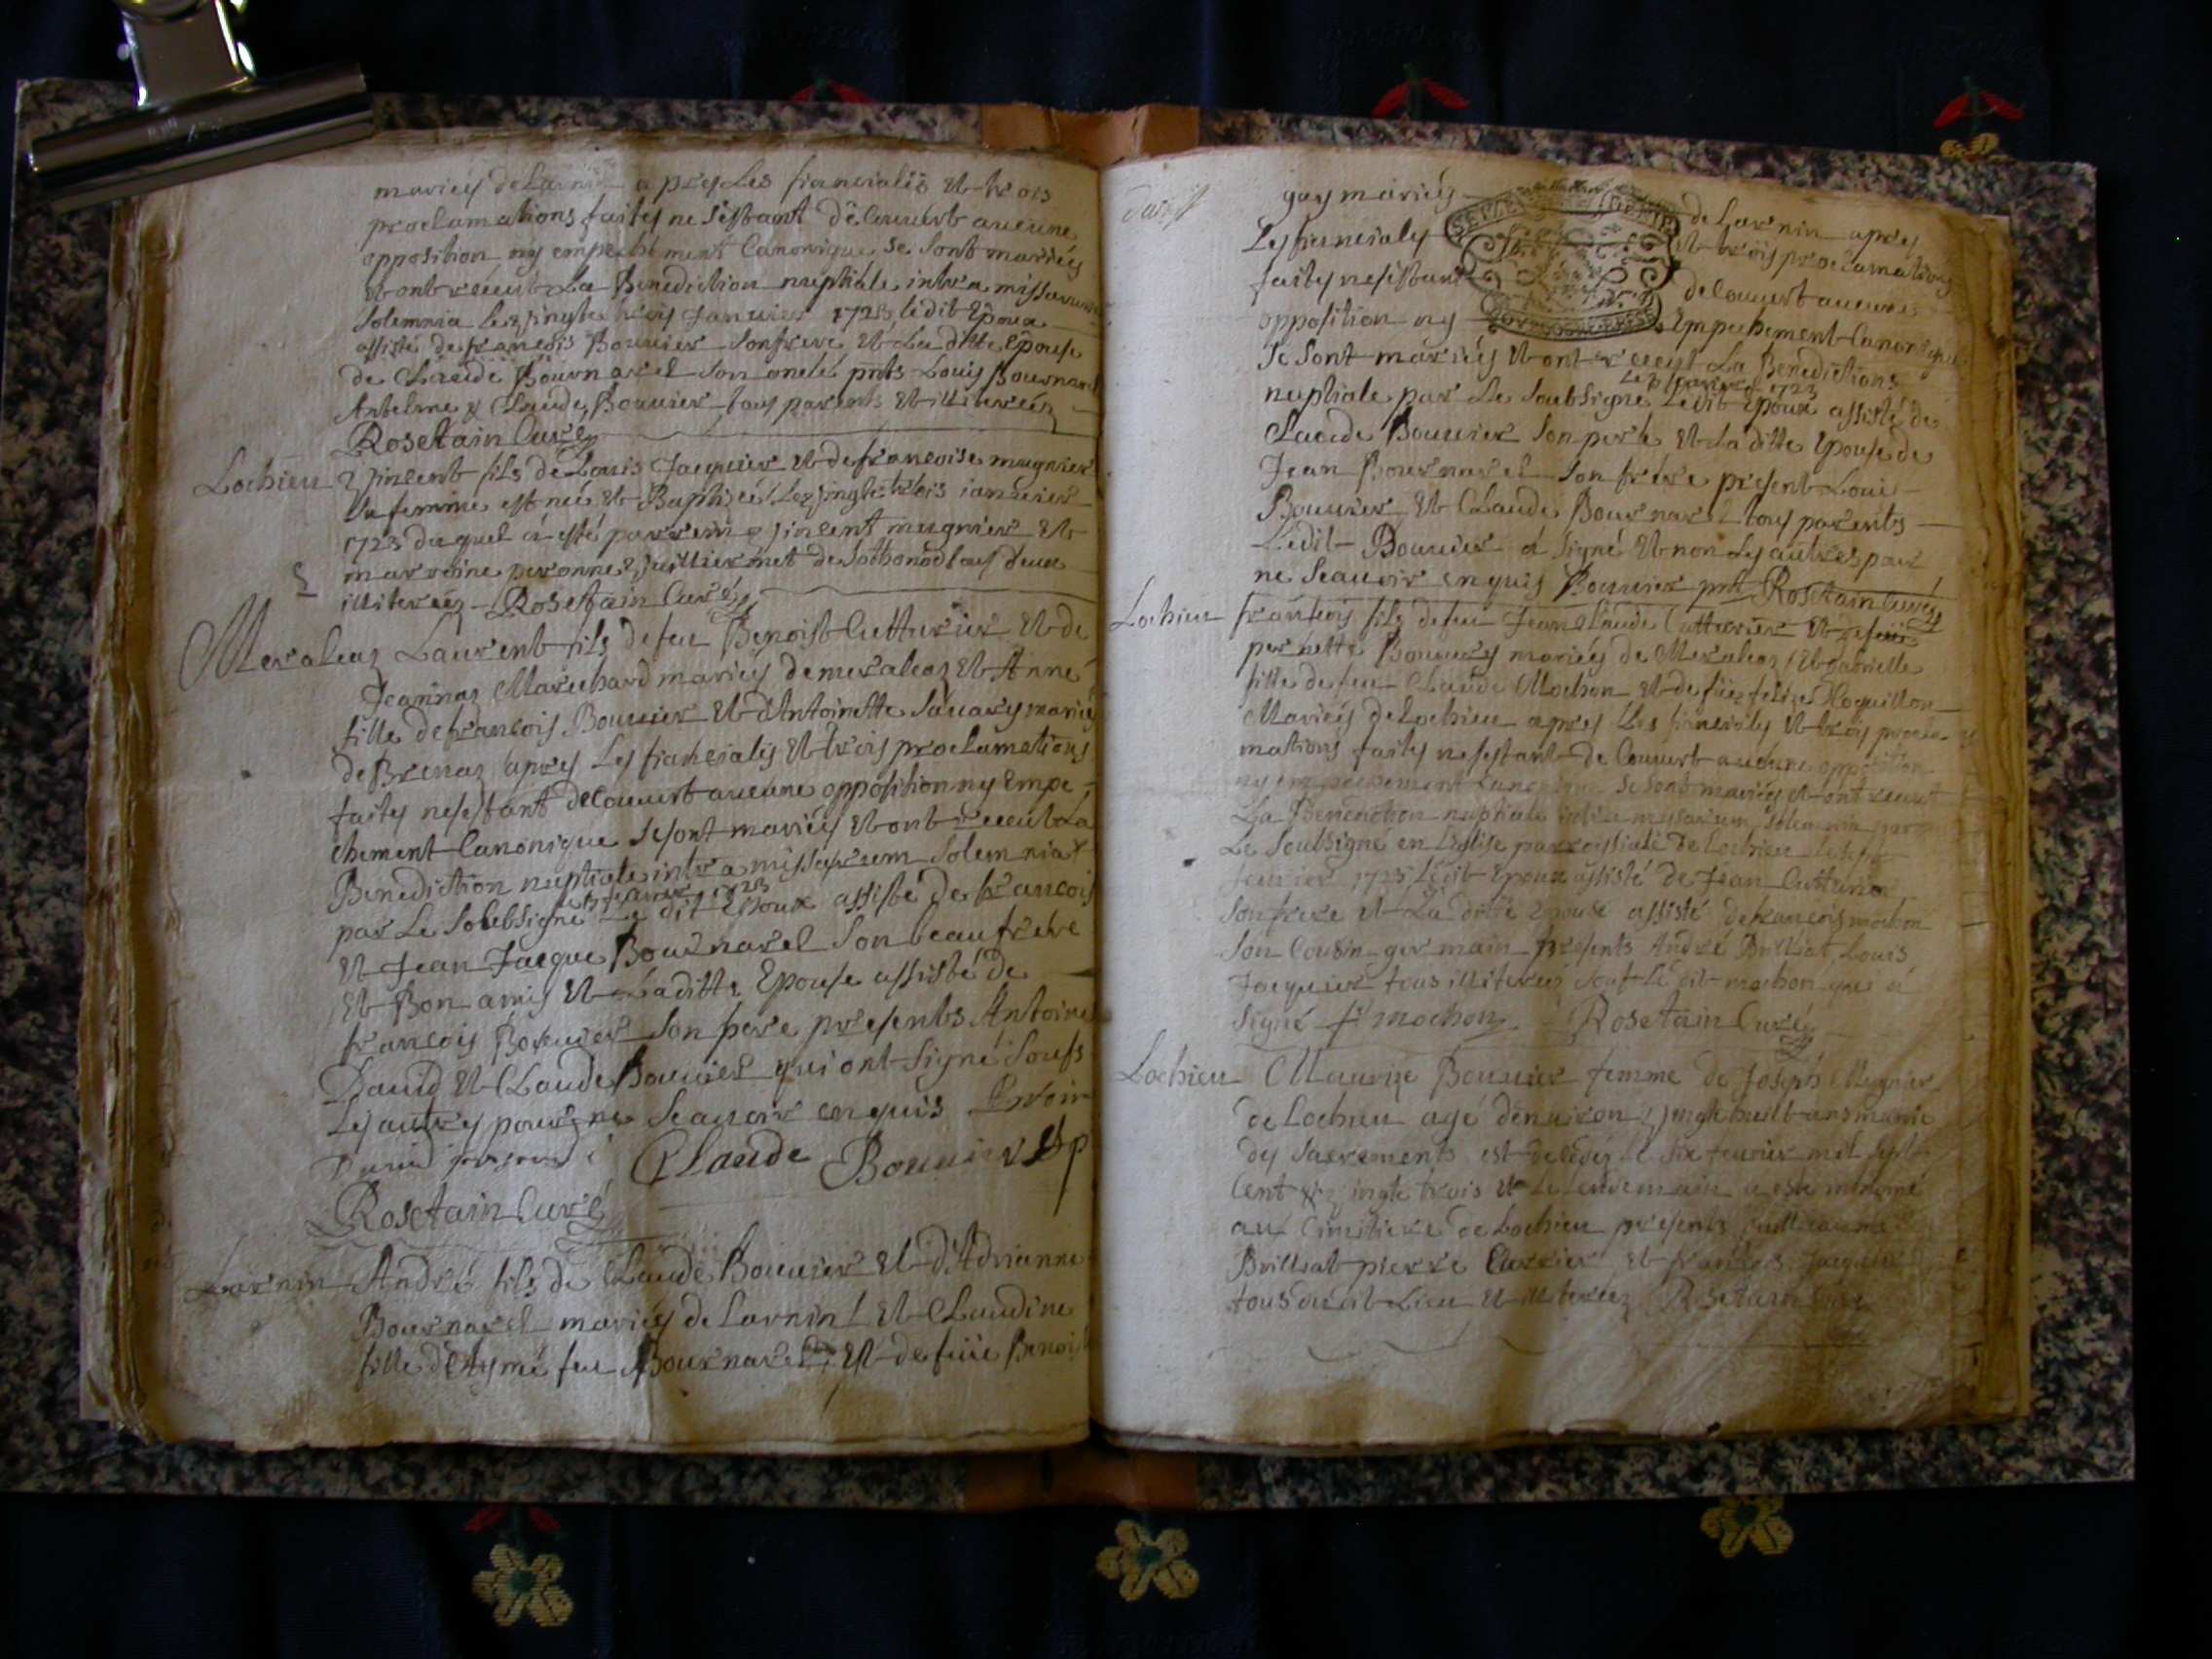 mariés de Larnin apres Les fiancialis et trois
proclamations faites ne s'estant decouvert aucune
opposition ny empechement Canonique se sont mariés
et ont receut La Benediction nuptiale intra missarum
solemnia le vingte trois Janvier 1723 ledit Epoux
assisté de francois Bouvier son frere et La ditte Epouse
de Claude Bournarel son oncle pnts Louis Bournarel
Antelme & Claude Bouvier tous parents et illiterés
Rosetain Curé
Lochieu Vincent fils de Louis Jacquier et de francoise mugnier
sa femme est né et Baptisé Le vingte trois ianvier
1723 duquel a esté parrein vincent mugnier et
marreine peronne Vuilliermet de Sothonod tous deux
illiterés Rosetain Curé
Meraleaz Laurent fils de feu Benoist Cutturier et de
Jeannaz Maruchard mariés de meraleaz et Anne
fille de francois Bouvier et d'Antoinette Savary mariés
de Brenaz apres Les fiancialis et trois proclamations
faites ne sestant decouvert aucune opposition ny Empe
chement Canonique se sont mariés et ont receut La
Benediction nuptiale intra missarum solemnia
par Le Soubsigné Le dit Epoux assisté de francois
feuvrier 1723
et Jean Jacque Bournarel son beaufrere
et Bon amis et La ditte Epouse assisté de
francois Bouvier son pere presents Antoine
David et Claude Bouvier qui ont signé
Les autres pour ne Scavoir enquis
David Claude Bouvier
Rosetain Curé
Larnin André fils de Claude Bouvier et d'Adrianne
Bournarel mariés de Larnin et Claudine
fille d'Aymé feu Bournarel et de füe Benoi
gay mariés de Larnin apres
Les fiancialis et trois proclamations
faites ne sestant decouvert aucune
opposition ny Empechement Canonique
se sont mariés et ont receut La Benediction
1723
nuptiale par Le Soubsigné Ledit Epoux assisté de
Claude Bouvier son pere et La ditte Epouse de
Jean Bournarel son frere present Loui
Bouvier et Claude Bournarel tous parents
Ledit Bouvier a signé et non Les autres pour
ne Scavoir enquis Bouvier pnt Rosetain Curé
Lochieu francois fils de feu Jean Claude Cutturier et
pernette mariés de Meraleaz et Gabrielle
fille de feu Claude Mochon et de füe felize
Mariés de Lochieu apres Les fiancialis et trois procla
mations faites ne sestant decouvert aucune opposition
ny empechement se sont mariés et ont receut
La Benediction nuptiale intra missarum solemnia par
Le Soubsigné en L'Eglise parroissiale de Lochieu
feuvrier 1723 Ledit Epoux assisté de Jean Cutturier
son frere et La ditte Epouse assisté de francois mochon
son Cousin germain presents André Brilliat Louis
Jacquier tous illiterés Le dit mochon qui a
signé f mochon Rosetain Curé
Lochieu Maurize Bouvier femme de Joseph Megnier
de Lochieu agé d'environ vingte huilt ans munie
des Sacrements est le six feuvrier mil sept
Cent vingte trois et Le Lendemain a esté
au Cimetiere de Lochieu presents Guillaume
Brilliat pierre Currier et francois Jacquier
tous dudit Lieu et illiterés Rosetain Curé